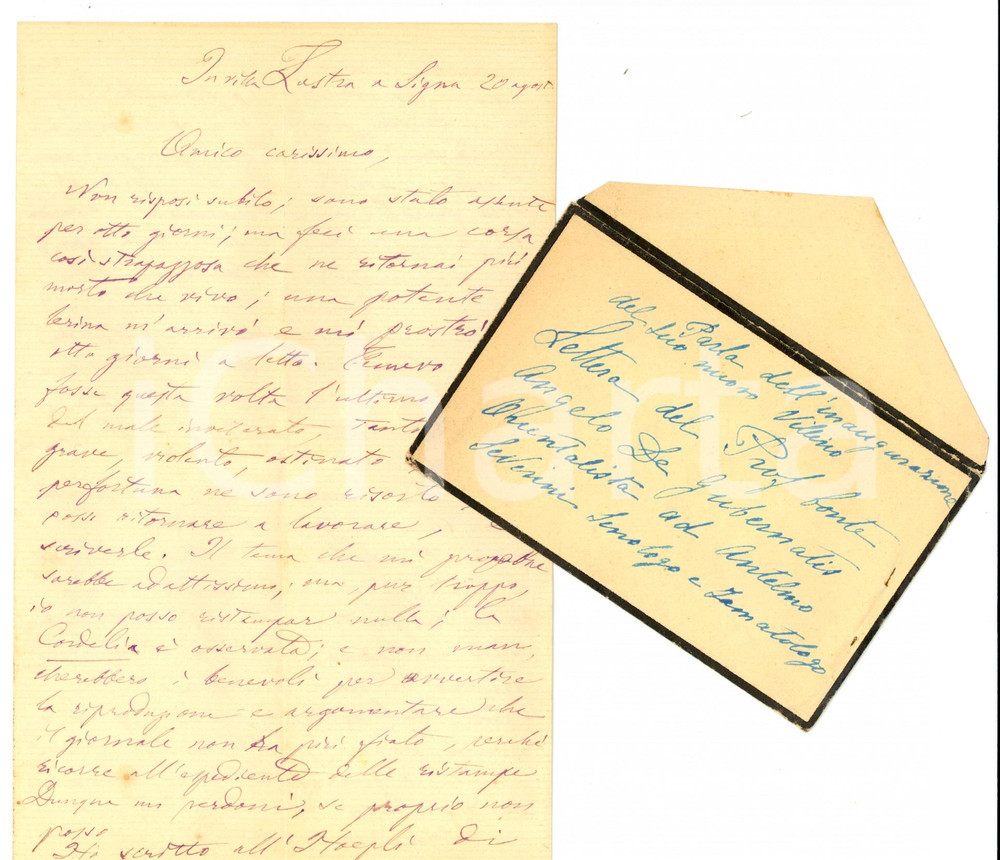 In villa Lastra a Signa 20 agost
Amico carissimo,
Non risposi subito; sono stato assente
per otto giorni; ma feci una corsa
così strapazzosa che ne ritornai più
morto che vivo; una potente
m'arrivò e mi prostrò
otto giorni a letto. Temevo
fosse questa volta l'ultimo
del male inveterato, tanto
grave, violento, ostinato
per fortuna ne sono risorto
posso ritornare a lavorare,
scriverle. Il tema che mi propone
sarebbe adattissimo; ma pur troppo,
io non posso ristampar nulla; la
Cordelia è osservata; e non man,
cherebbero i benevoli per avvertire
la riproduzione e argomentare che
il giornale non ha più fiato, perché
ricorre all'espediente delle ristampe
Dunque mi perdoni, se proprio non
posso
Ho scritto all'Hoepli di
Parla dell'inaugurazione
del suo nuovo Villino
Lettera del Prof conte
Angelo De Gubernatis
Orientalista ad Antelmo
Severini Sinologo e Iamatologo
iCharta